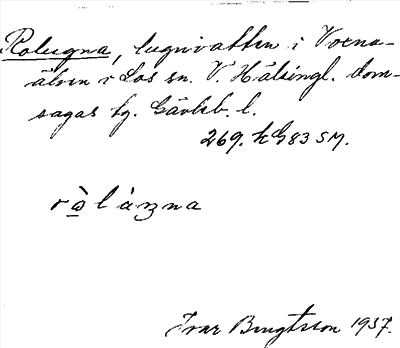 Rolugna, lugnvatten i Voxna-
älven i Los sn. V. Hälsingl. dom-
sagas tg. Gävleb. l.
269. k G83 SM.
ròlúgna
Ivar Bengtsson 1937.